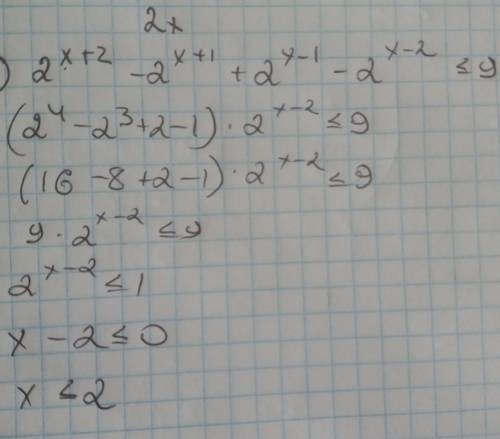 2x
) 2^{x+2} - 2^{x+1} + 2^{x-1} - 2^{x-2} ≤ 9
(2^4 - 2^3 + 2 - 1) · 2^{x-2} ≤ 9
(16 - 8 + 2 - 1) · 2^{x-2} ≤ 9
9 · 2^{x-2} ≤ 9
2^{x-2} ≤ 1
x - 2 ≤ 0
x ≤ 2